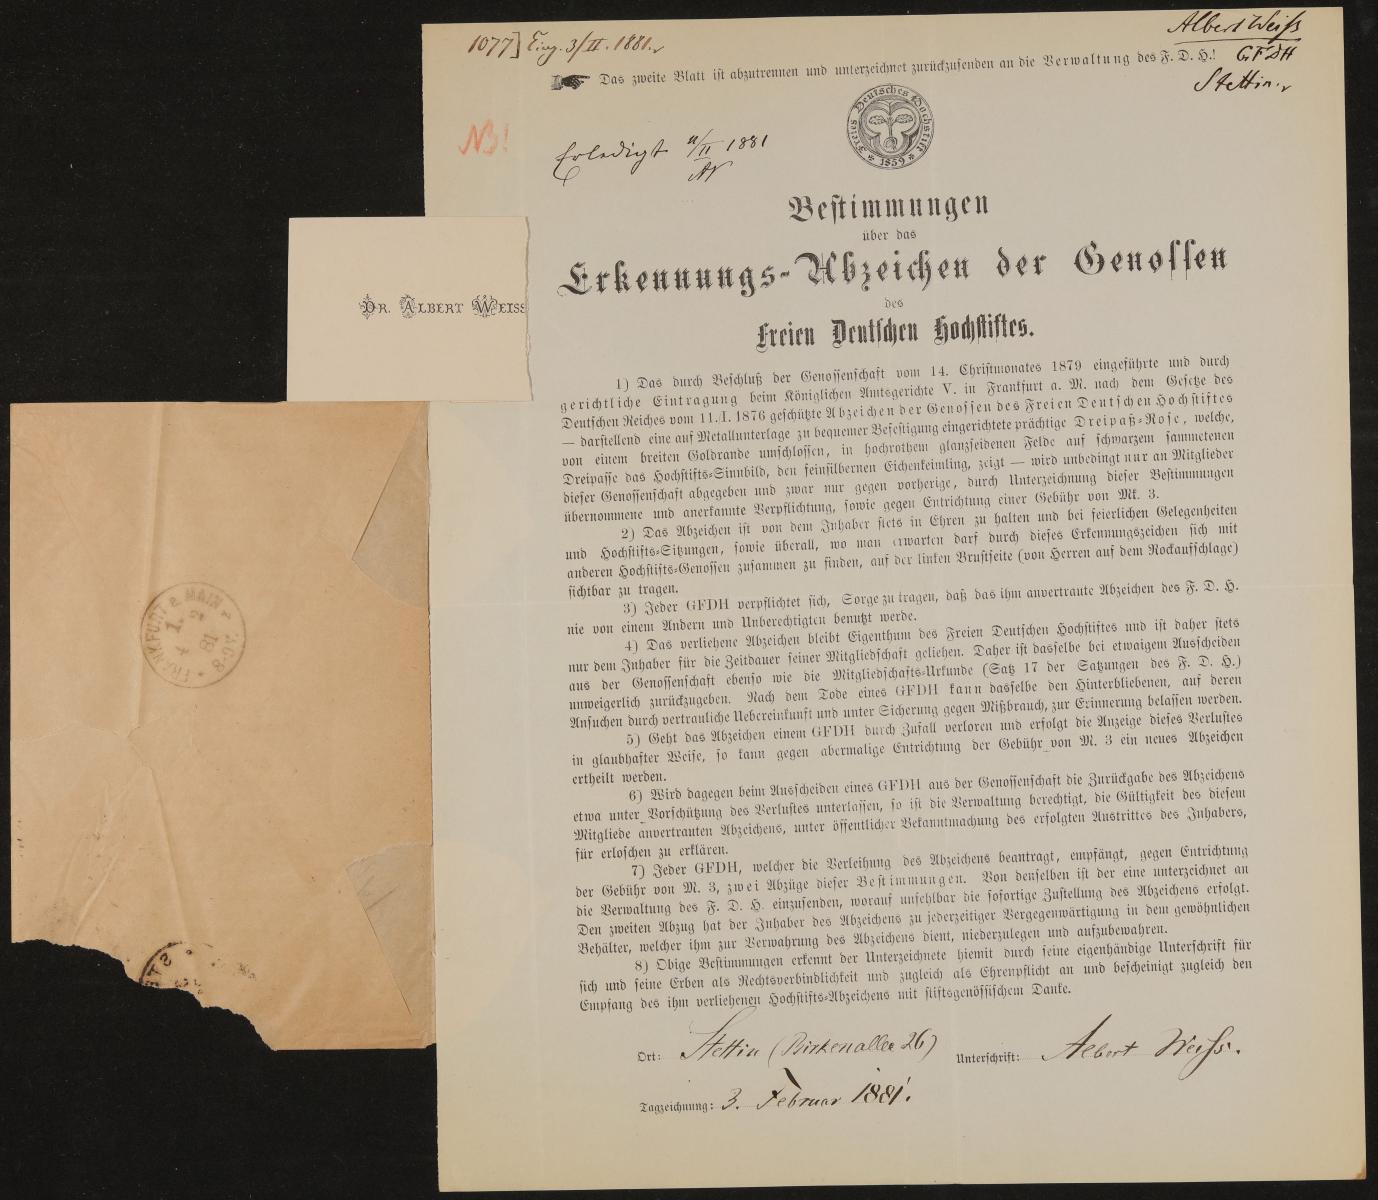 1077] Eing. 3/II. 1881.
Albert Weiß
GFDH
Stettin.
Das zweite Blatt ist abzutrennen und unterzeichnet zurückzusenden an die Verwaltung des F. D. H.!
NB!
Erledigt 4/II 1881
Freies Deutsches Hochstift
1859
Bestimmungen
über das
Erkennungs-Abzeichen der Genossen
des
Freien Deutschen Hochstiftes.
DR. ALBERT WEISS
1) Das durch Beschluß der Genossenschaft vom 14. Christmonates 1879 eingeführte und durch
gerichtliche Eintragung beim Königlichen Amtsgerichte V. in Frankfurt a. M. nach dem Gesetze des
Deutschen Reiches vom 11./I. 1876 geschützte Abzeichen der Genossen des Freien Deutschen Hochstiftes
— darstellend eine auf Metallunterlage zu bequemer Befestigung eingerichtete prächtige Dreipaß-Rose, welche,
von einem breiten Goldrande umschlossen, in hochrothem glanzseidenen Felde auf schwarzem sammetenen
Dreipasse das Hochstifts-Sinnbild, den feinsilbernen Eichenkeimling, zeigt — wird unbedingt nur an Mitglieder
dieser Genossenschaft abgegeben und zwar nur gegen vorherige, durch Unterzeichnung dieser Bestimmungen
übernommene und anerkannte Verpflichtung, sowie gegen Entrichtung einer Gebühr von Mk. 3.
2) Das Abzeichen ist von dem Inhaber stets in Ehren zu halten und bei feierlichen Gelegenheiten
und Hochstifts-Sitzungen, sowie überall, wo man erwarten darf durch dieses Erkennungszeichen sich mit
anderen Hochstifts-Genossen zusammen zu finden, auf der linken Brustseite (von Herren auf dem Rockaufschlage)
sichtbar zu tragen.
3) Jeder GFDH verpflichtet sich, Sorge zu tragen, daß das ihm anvertraute Abzeichen des F. D. H.
nie von einem Andern und Unberechtigten benutzt werde.
4) Das verliehene Abzeichen bleibt Eigenthum des Freien Deutschen Hochstiftes und ist daher stets
nur dem Inhaber für die Zeitdauer seiner Mitgliedschaft geliehen. Daher ist dasselbe bei etwaigem Ausscheiden
aus der Genossenschaft ebenso wie die Mitgliedschafts-Urkunde (Satz 17 der Satzungen des F. D. H.)
unweigerlich zurückzugeben. Nach dem Tode eines GFDH kann dasselbe den Hinterbliebenen, auf deren
Ansuchen durch vertrauliche Uebereinkunft und unter Sicherung gegen Mißbrauch, zur Erinnerung belassen werden.
5) Geht das Abzeichen einem GFDH durch Zufall verloren und erfolgt die Anzeige dieses Verlustes
in glaubhafter Weise, so kann gegen abermalige Entrichtung der Gebühr von M. 3 ein neues Abzeichen
ertheilt werden.
6) Wird dagegen beim Ausscheiden eines GFDH aus der Genossenschaft die Zurückgabe des Abzeichens
etwa unter Vorschützung des Verlustes unterlassen, so ist die Verwaltung berechtigt, die Gültigkeit des diesem
Mitgliede anvertrauten Abzeichens, unter öffentlicher Bekanntmachung des erfolgten Austrittes des Inhabers,
für erloschen zu erklären.
7) Jeder GFDH, welcher die Verleihung des Abzeichens beantragt, empfängt, gegen Entrichtung
der Gebühr von M. 3, zwei Abzüge dieser Bestimmungen. Von denselben ist der eine unterzeichnet an
die Verwaltung des F. D. H. einzusenden, worauf unfehlbar die sofortige Zustellung des Abzeichens erfolgt.
Den zweiten Abzug hat der Inhaber des Abzeichens zu jederzeitiger Vergegenwärtigung in dem gewöhnlichen
Behälter, welcher ihm zur Verwahrung des Abzeichens dient, niederzulegen und aufzubewahren.
8) Obige Bestimmungen erkennt der Unterzeichnete hiemit durch seine eigenhändige Unterschrift für
sich und seine Erben als Rechtsverbindlichkeit und zugleich als Ehrenpflicht an und bescheinigt zugleich den
Empfang des ihm verliehenen Hochstifts-Abzeichens mit stiftsgenössischem Danke.
Ort: Stettin (Birkenallee 26) Unterschrift: Albert Weiß.
Tagzeichnung: 3. Februar 1881.
FRANKFURT a. MAIN
1.
4 2
81